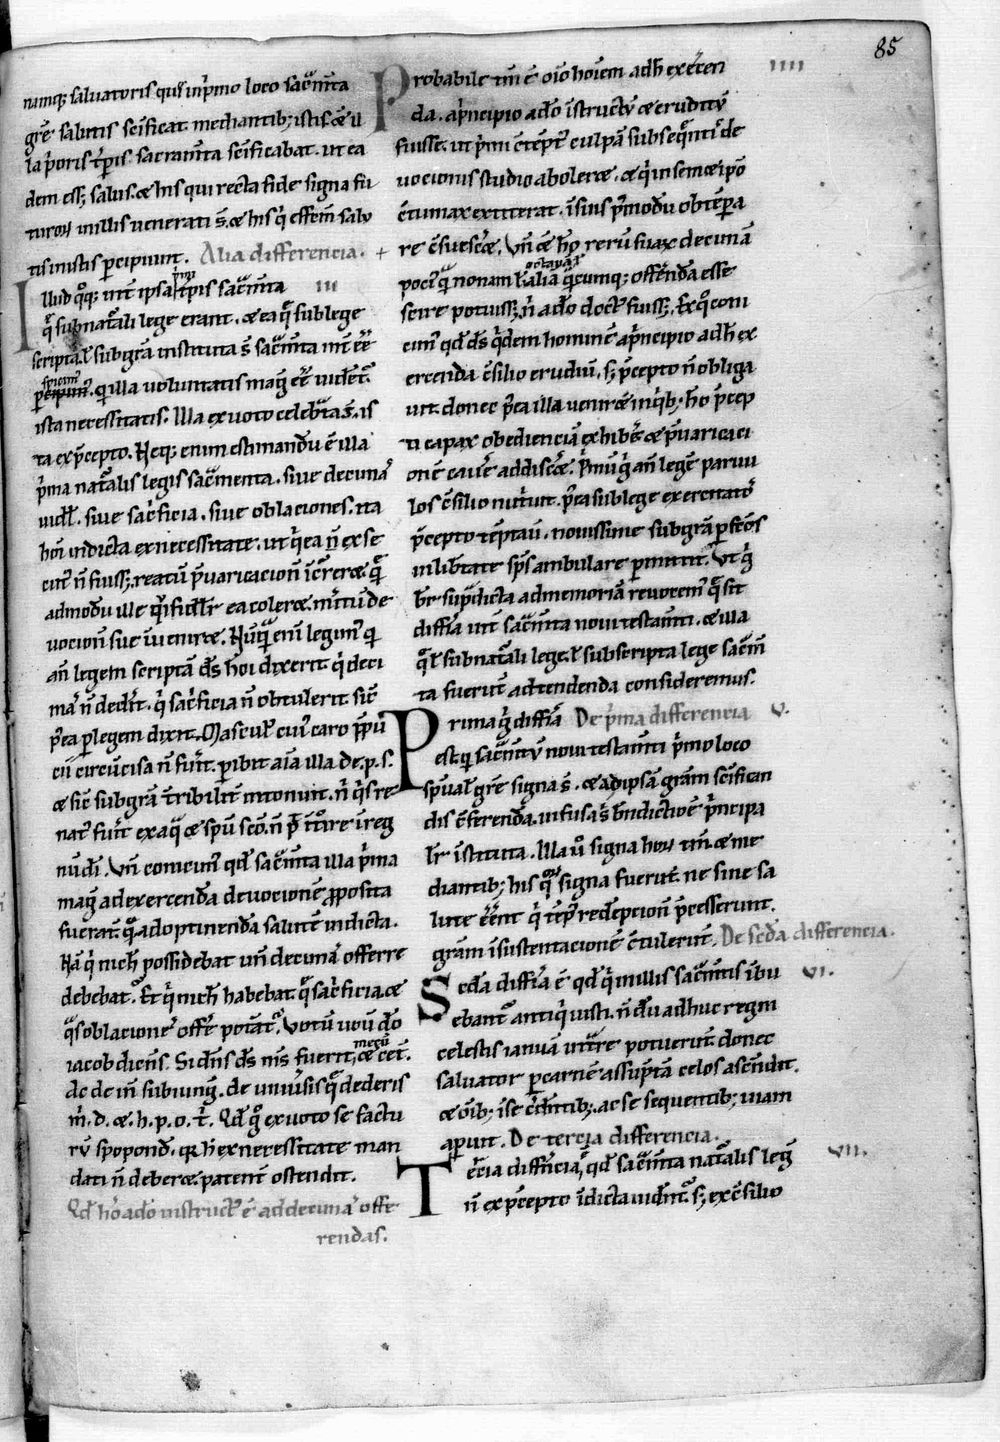 85
namq; saluatoris quis inp̄mo loco sacm̄ta
gr̄e salutis sc̄ificat. mediantib; istis. & il
la p̄oris t̄pis sacram̄ta sc̄ificabat. ut ea
dem ess; salus. & his qui recta fide signa fu
turoꝝ in illis uenerati s̄. & his q̄ effem̄ salu
tis in istis percipiunt. Alia differencia. +
Illud qoq; int̄ ipsa p̄mi t̄pis sacm̄ta III
q̄ sub nat̄ali lege erant. & ea q̄ sub lege
scripta. ł sub gr̄a instituta s̄ sacm̄ta int̄ee
q̄ illa uoluntatis maḡ eē uident̄.
ista necessitatis. Illa ex uoto celebrata s̄. is
ta ex p̄cepto. Neq; enim estimandū ē illa
p̄ma nat̄alis legis sacm̄enta. siue decimas
uidł. siue sac̄ficia. siue oblaciones. ita
hōi indicta ex necessitate. ut q̄ ea ñ exse
cut; ñ fuiss; reatū p̄uaricacioñ ic̄rer& q̄
admodū ille q̄ fidełr ea coler& m̄itū de
uocioñ sue īuenir&. Nūq̄ eni legim; q̄
añ legem scriptā d̄s hōi dixerit q̄ deci
mas ñ dedit. q̄ sac̄ficia ñ obtulerit sic̄
p̄ea p̄ legem dixit. Mascul; cui; caro p̄pucii
cū circūcisa ñ fūit. p̄ibit aīa illa de. p. s.
& sic̄ sub gr̄a t̄ribilit̄ intonuit. ñ q̄s re
nat; fūit ex aq̄ & sp̄u sc̄o. ñ p̄t ītroire ī reg
nū d̄i. Vñ conicim; qd̄ sacm̄ta illa p̄ma
maḡ ad exercendā deuocionē p̄posita
fuerant q̄ ad optinendā salutē indicta.
Nā q̄ nich̄ possidebat un̄ decimas offerre
debebat. Et q̄ nich̄ habebat. q̄ sac̄ficia. &
q̄s oblaciones offerre pot̄at. Votū uouit d̄o
iacob dicens. Si dn̄s d̄s ms̄ fuerit mecū & cet̄.
de deīn subiunḡ. de uniūsis q̄ dederis
m̄. d. & h. p. o. t̄. Qd̄ g̊ ex uoto se factu
rū spopond̄. qz h̄ ex necessitate man
dati ñ deber& patent̄ ostendit.
Qd̄ hō a d̄o instruct; ē ad decimas offe
rendas.
Probabile tm̄ ē oīo hoīem ad h̄ exercen IIII
da. a p̄ncipio a d̄o īstructū & eruditū
fuisse. ut p̄mi c̄tēpt; culpā subseq̄nti de
uocionis studio aboler&. & q̄ in semetip̄o
c̄tumax extiterat. ī suis p̄modū obtēpa
re c̄suesc&. Vñ & hō rerū suaꝝ decimā
poci; q̄ nonam ł octauā ł aliā q̄cumq; offerendā esse
scire potuiss; n̄ a d̄o doct; fuiss;. Ex q̊ coni
cim; qd̄ d̄s q̄dem hominē a p̄ncipio ad h̄ ex
ercenda c̄silio erudiuit. s; p̄cepto ñ obliga
uit. donec p̄ea illa uenir& in q̄b; hō p̄cep
ti capax obedienciā exhiber& & p̄uaricaci
onē cauere addisc&. P̄mū g̊ añ legē paruu
los c̄silio nut̄iuit. p̄ea sub lege exercitatos
p̄cepto tēptauit. nouissime sub gr̄a p̄fectos
in lib̄tate sp̄s ambulare permittit. Vt g̊
br̄ sup̄dicta ad memoriā reuocem; q̄ sit
differ̄ia int̄ sacm̄ta noui testam̄ti. & illa
q̄ ł sub nat̄ali lege. ł sub scripta lege sacm̄
ta fuerūt adtendenda consideremus.
Prima g̊ diffīa De p̄ma differencia V.
est. q̄ sacm̄tū noui testam̄ti p̄mo loco
sp̄ualis gr̄e signa s̄. & ad ipsā gr̄am sc̄ifican
dis c̄ferendā. infusa s̄ bn̄dictiōe p̄ncipa
lr̄ īstituta. Illa ū signa hoꝝ tm̄. & me
diantib; his quoꝝ signa fuerūt ne sine sa
lute eēnt q̄ tēpr redēptioñ p̄cesserunt.
gr̄am ī sustentacionē c̄tulerūt. De sc̄da differencia.
Sc̄da diffīa ē qd̄ q̄ in illis sacm̄tis ību VI.
ebant; antiq̄ iusti. ñ dū adhuc regni
celestis ianuā intrare potuerūt donec
saluator p̄ carnē assūptā celos ascendit.
& oīb; ī se c̄dentib;. ac se sequentib; uiam
aperuit. De tercia differencia.
Tercia diffr̄ncia, qd̄ sacm̄ta nat̄alis leḡ VII.
ñ ex p̄cepto īdicta uident;. s; ex c̄silio